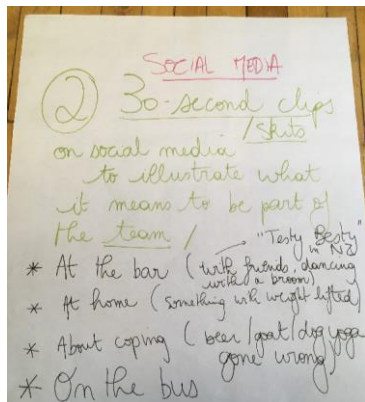 SOCIAL MEDIA
② 30-second clips
/skits
on social media
to illustrate what
it means to be part of
the team /
"Testy Besty"
in NZ
* At the bar (with friends, dancing
with a broom)
* At home (something with weight lifted)
* About coping (beer/goat/dog yoga
gone wrong)
* On the bus